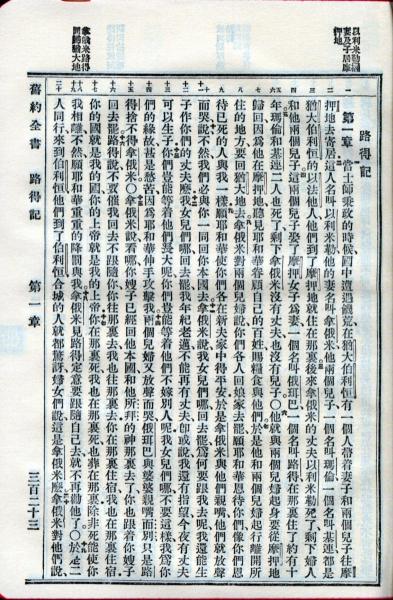 以利米勒因
妻及子居摩
押地
路得記
第一章 當士師秉政的時候國中遭遇饑荒在猶大伯利恒有一個人帶着妻子和兩個兒子往摩
押地去寄居這人名叫以利米勒他的妻名叫拿俄米他兩個兒子一個名叫瑪倫一個名叫基連都是
猶大伯利恒的以法他人他們到了摩押地就住在那裏後來拿俄米的丈夫以利米勒死了剩下婦人
和他兩個兒子這兩個兒子娶了摩押女子為妻一個名叫俄珥巴一個名叫路得在那裏住了約有十
年瑪倫和基連二人也死了剩下拿俄米沒有丈夫也沒有兒子〇他就與兩個兒婦起身要從摩押地
歸回因為他在摩押地聽見耶和華眷顧自己的百姓賜糧食與他們於是他和兩個兒婦起行離開所
住的地方要回猶大地去拿俄米對兩個兒婦說你們各人回娘家去罷願耶和華恩待你們像你們恩
待已死的人與我一樣願耶和華使你們各在新夫家中得平安於是拿俄米與他們親嘴他們就放聲
而哭說不然我們必與你一同回你本國去拿俄米說我女兒們哪回去罷為何要跟我去呢我還能生
子作你們的丈夫麼我女兒們哪回去罷我年紀老邁不能再有丈夫卽或說我還有指望今夜有丈夫
可以生子你們豈能等着他們長大呢你們豈能等着他們不嫁別人呢我女兒們哪不要這樣我為你
們的緣故甚是愁苦因為耶和華伸手攻擊我兩個兒婦又放聲而哭俄珥巴與婆婆親嘴而別只是路
得捨不得拿俄米〇拿俄米說看哪你嫂子已經回他本國和他所拜的神那裏去了你也跟着你嫂子
回去罷路得說不要催我回去不跟隨你你往那裏去我也往那裏去你在那裏住宿我也在那裏住宿
你的國就是我的國你的上帝就是我的上帝你在那裏死我也在那裏死也葬在那裏除非死能使你
我相離不然願耶和華重重的降罰與我拿俄米見路得定意要跟隨自己去就不再勸他了〇於是二
人同行來到伯利恒他們到了伯利恒合城的人就都驚訝婦女們說這是拿俄米麼拿俄米對他們說
拿俄米路得
同歸猶大地
舊約全書 路得記 第一章 三百二十三